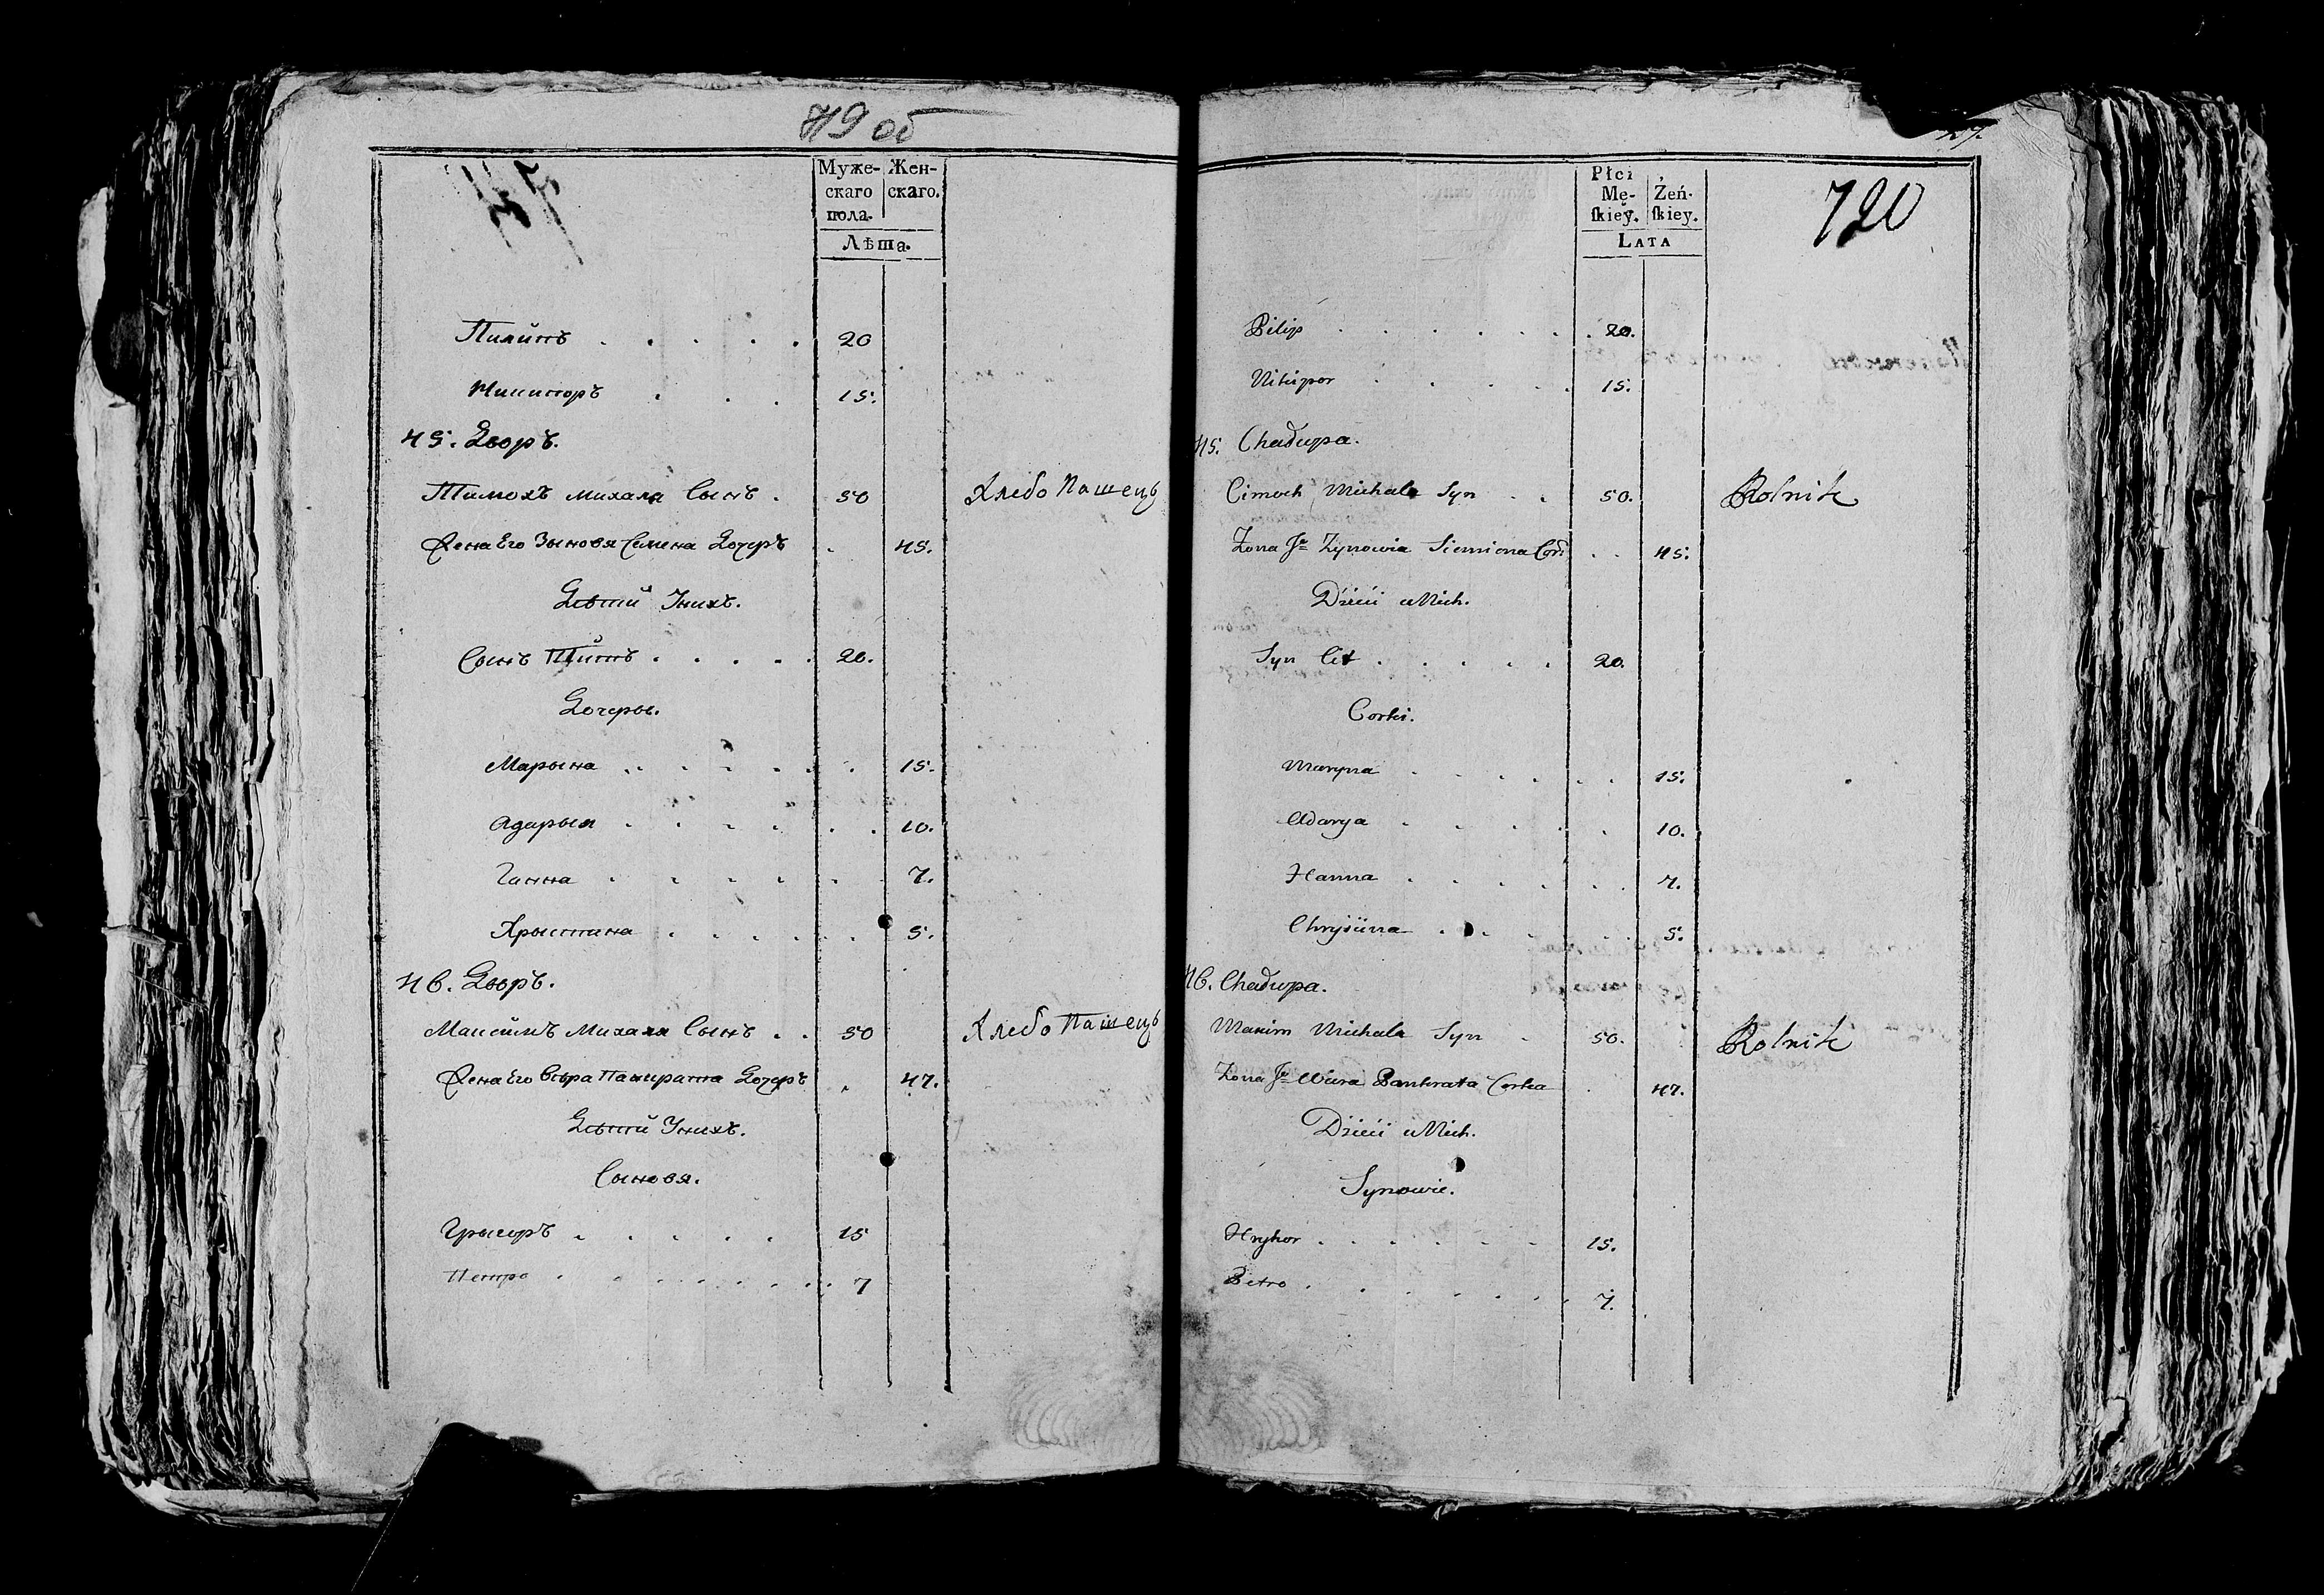 79 об
Муже-
скаго
пола.
Жен-
скаго.
Лѣта.
Пилипъ . . . . . 20
Никипоръ . . . 15.
45. Дворъ.
Тимохъ Михала Сынъ . 50 Хлебо Пашецъ
Жена Его Зыновя Семена Дочеръ . 45.
Дѣтй Унихъ.
Сынъ Тйтъ . . . . . 20.
Дочеры.
Марына . . . . . . 15.
Адарыя . . . . . . 10.
Ганна . . . . . . 7.
Хрыстина . . . . . . 5.
46. Дворъ.
Максймъ Михала Сынъ . . 50 Хлебо Пашецъ
Жена Его Вѣра Панкрата Дочеръ . 47.
Дѣтй Унихъ.
Сыновя.
Грыгоръ . . . . . 15
Петро . . . . . . . . 7
Płci
Mę-
ſkiey.
Żeń-
ſkiey.
LATA
720
Pilip . . . . . . . 20.
Nikipor . . . . . 15.
45. Chałupa.
Cimoch Michala Syn . . 50. Rolnik
Zona Je Zynowia Siemiona Cor . . 45.
Dzieci u Nich.
Syn Cit . . . . . 20.
Corki.
Maryna . . . . . . 15.
Adarya . . . . . 10.
Hanna . . . . . . 7.
Chryscina . . . . . 5.
46. Chałupa.
Maxim Michala Syn . 50. Rolnik
Zona Je Wiera Pankrata Corka . 47.
Dzieci u Nich.
Synowie.
Hryhor . . . . . . 15.
Petro . . . . . . . 7.